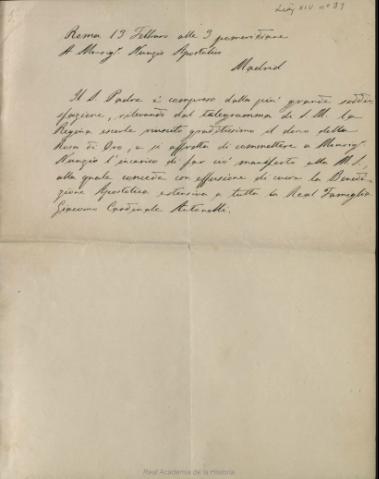 Leg XIV nº 89
Roma 13 Febbraro alle 3 pomeridiane
A Monsigr Nunzio Apostolico
Madrid
Il S. Padre è compreso dalla più grande soddis
fazione, rilevando dal telegramma di S. M. la
Regina esserle riuscito graditissimo il dono della
Rosa di Oro, e si affretta di commettere a Monsigr
Nunzio l'incarico di far ciò manifesto alla M. S.
alla quale concede con effusione di cuore la Benedi
zione Apostolica estensiva a tutta la Real Famiglia
Giacomo Cardinale Antonelli.
Real Academia de la Historia